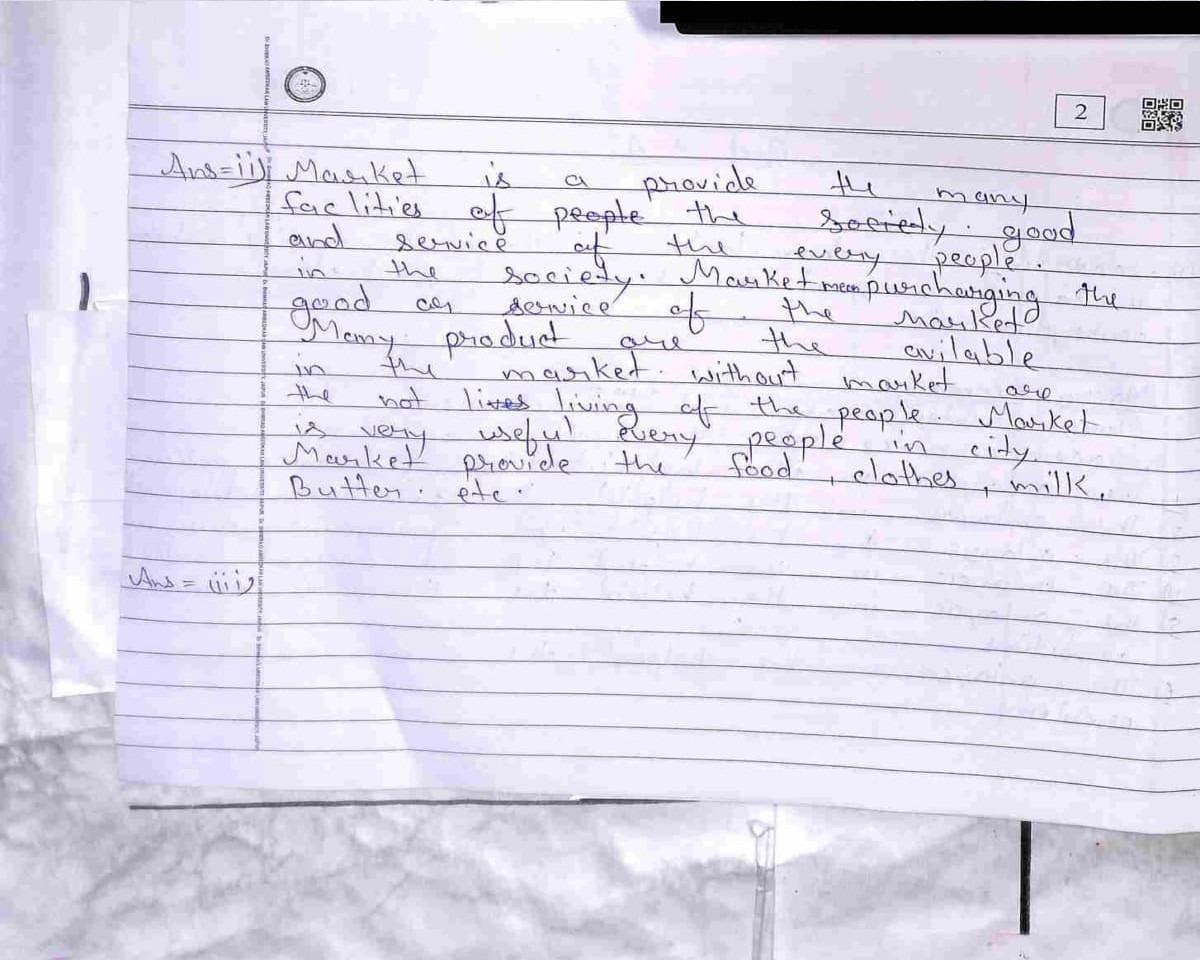 2
Ans=ii) Market is a provide the many
facilities of people the society. good
and service of the every people.
in the society. Market mean purcharging the
good or service of the market
Many product are the avilable
in the market. without market are
the not lives living of the people. Market
is very useful every people in city
Market provide the food, clothes, milk,
Butter. etc.
Ans = iii)